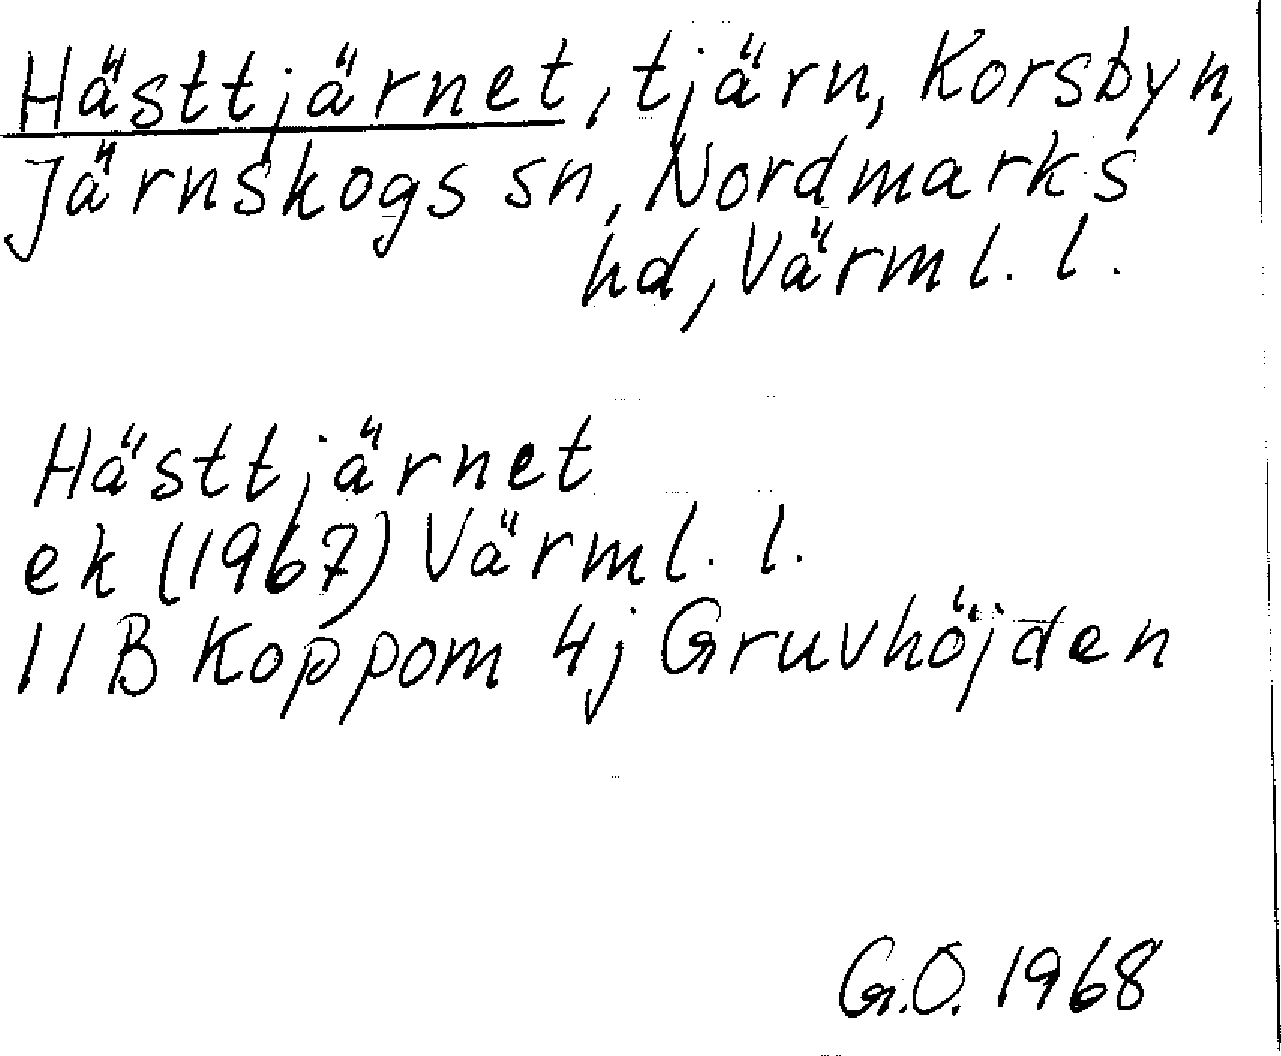 Hästtjärnet, tjärn, Korsbyn,
Järnskogs sn, Nordmarks
hd, Värml. l.
Hästtjärnet
ek (1967) Värml. l.
11B Koppom 4j Gruvhöjden
G.O. 1968